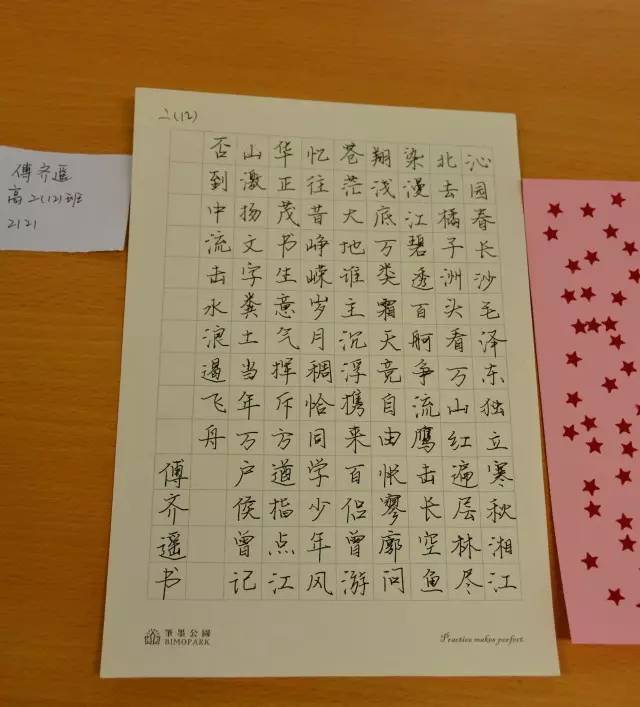 二(12)
沁园春长沙毛泽东独立寒秋湘江
北去橘子洲头看万山红遍层林尽
染漫江碧透百舸争流鹰击长空鱼
翔浅底万类霜天竞自由怅寥廓问
苍茫大地谁主沉浮携来百侣曾游
忆往昔峥嵘岁月稠恰同学少年风
华正茂书生意气挥斥方遒指点江
山激扬文字粪土当年万户侯曾记
否到中流击水浪遏飞舟
傅齐遥书
筆墨公園
BIMOPARK
Practice makes perfect.
傅齐遥
高二(12)班
2121